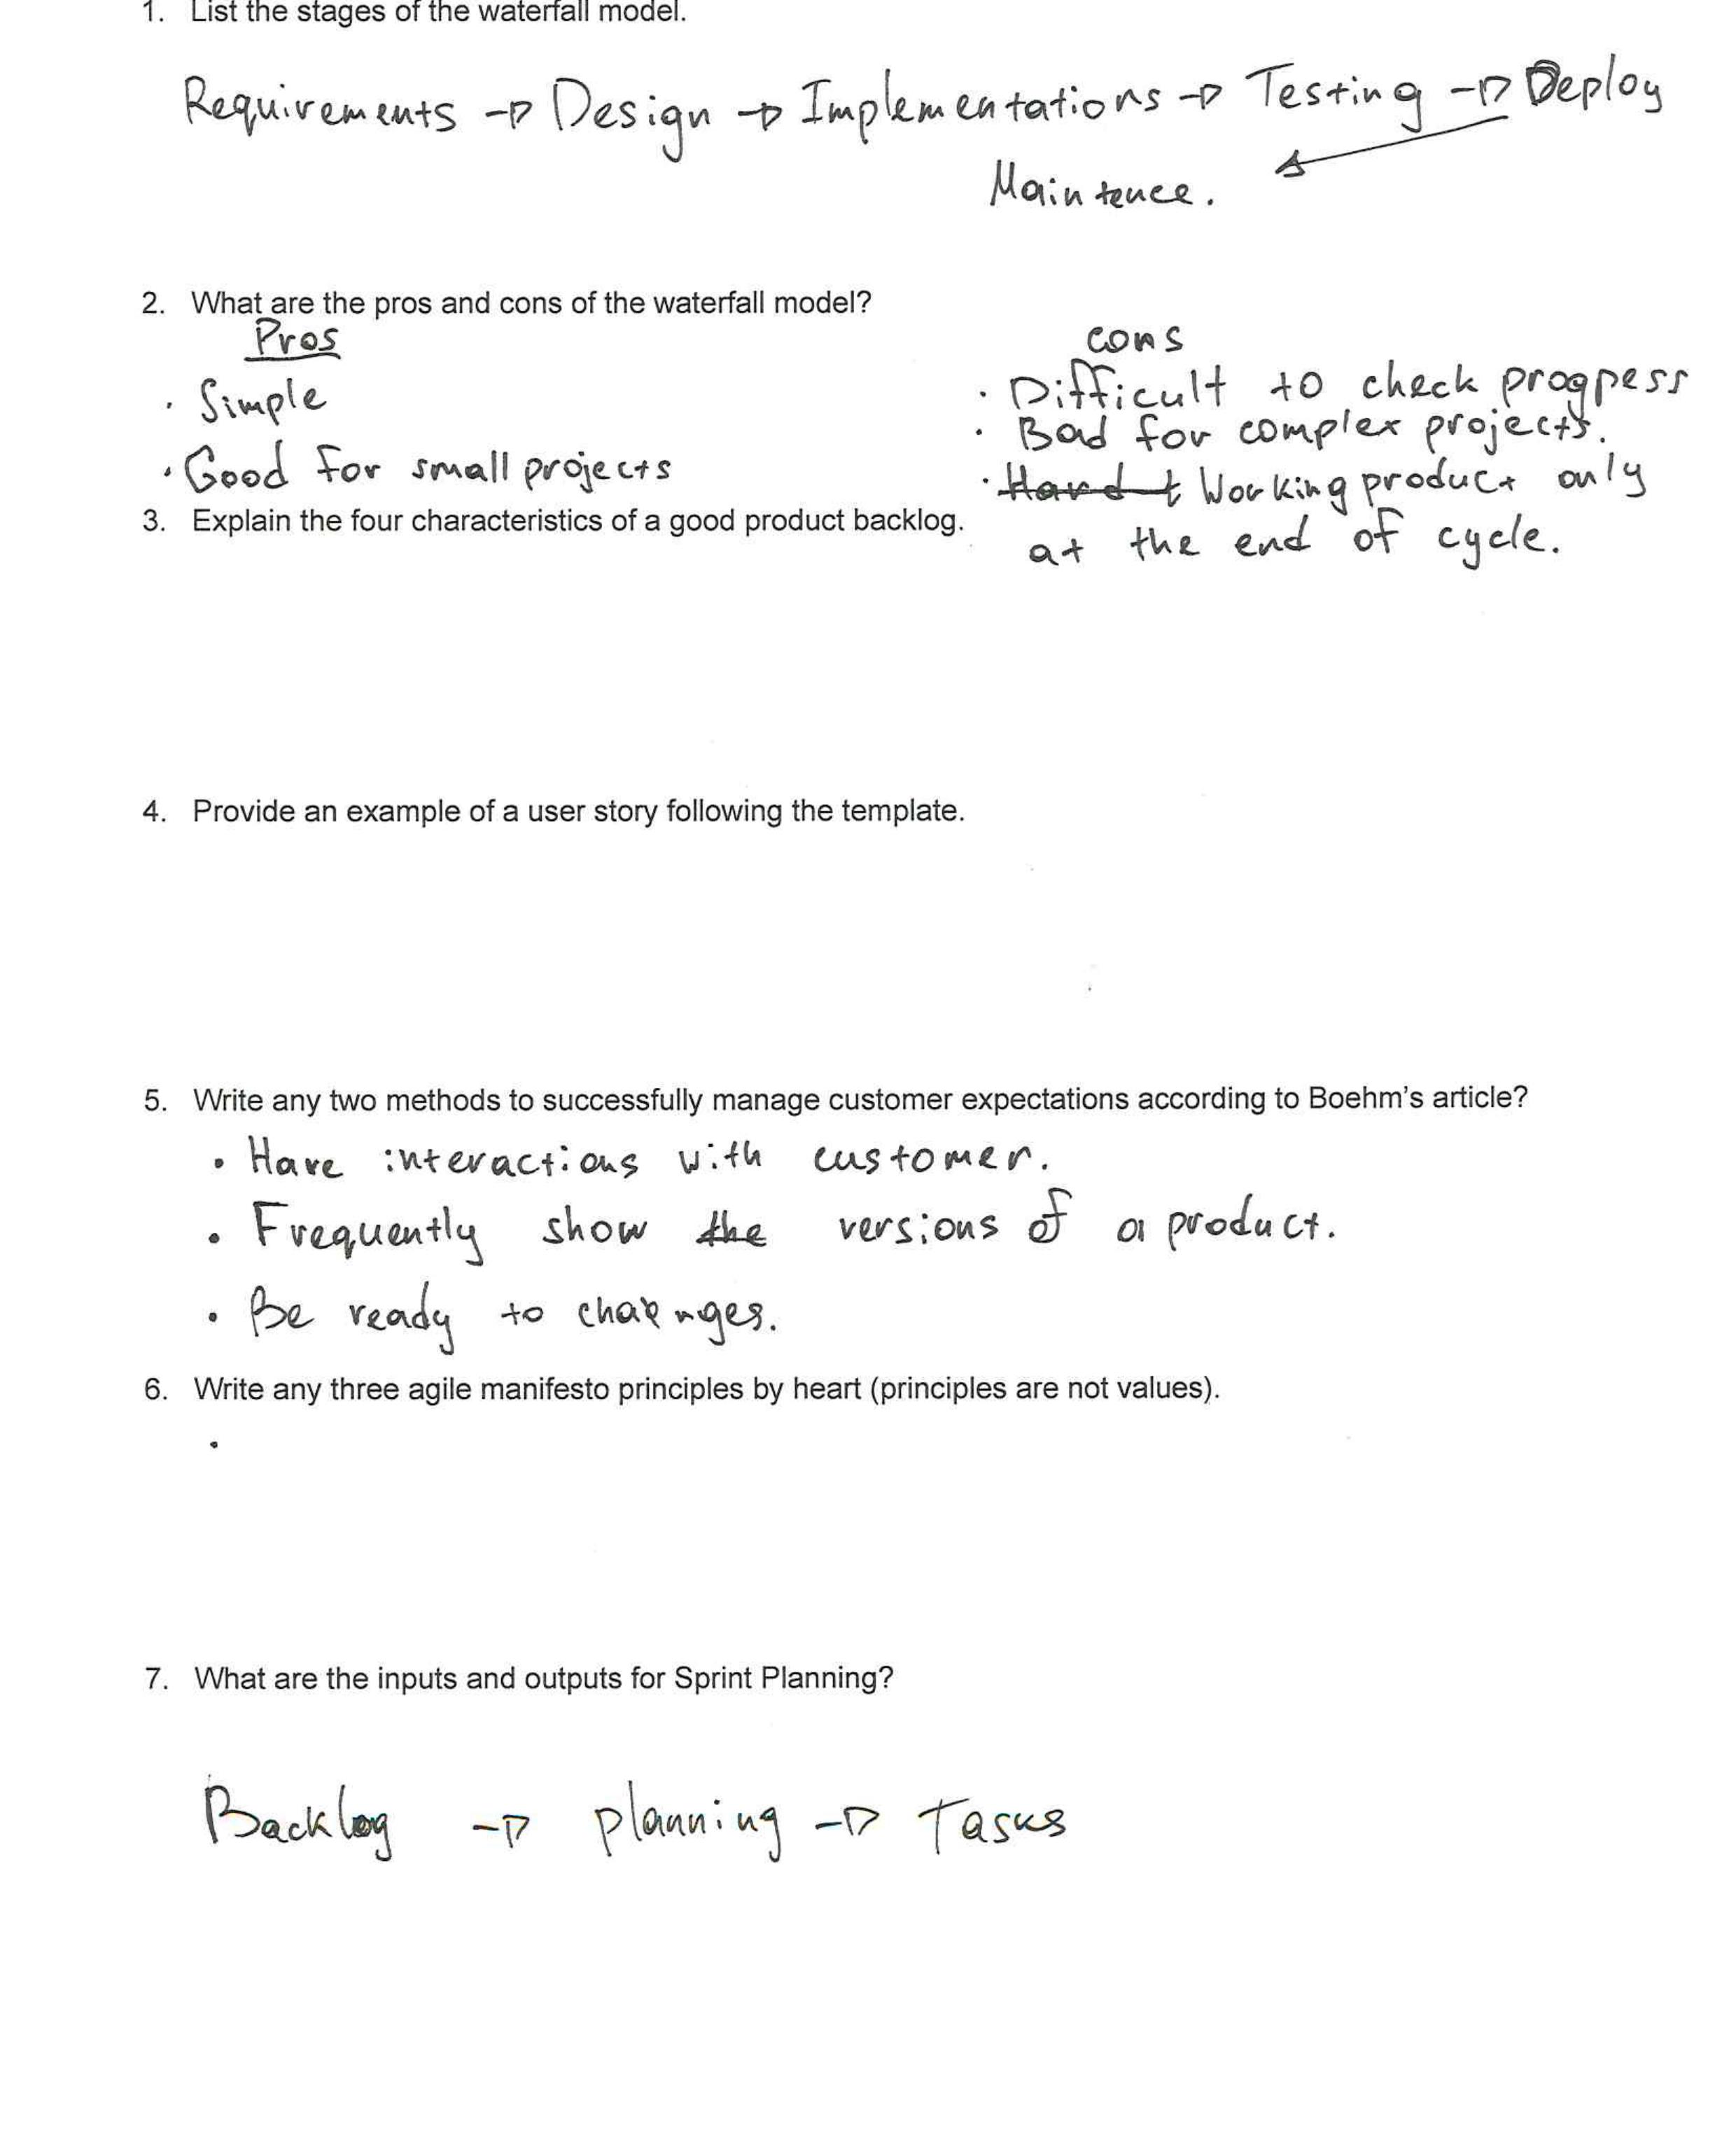 1. List the stages of the waterfall model.
Requirements → Design → Implementations → Testing → Deploy
Maintence.
2. What are the pros and cons of the waterfall model?
Pros
· Simple
· Good for small projects
cons
· Difficult to check progpess
· Bad for complex projects.
· Hard t Working product only
at the end of cycle.
3. Explain the four characteristics of a good product backlog.
4. Provide an example of a user story following the template.
5. Write any two methods to successfully manage customer expectations according to Boehm's article?
• Have interactions with customer.
• Frequently show the versions of a product.
• Be ready to changes.
6. Write any three agile manifesto principles by heart (principles are not values).
•
7. What are the inputs and outputs for Sprint Planning?
Backlog → planning → Tasks